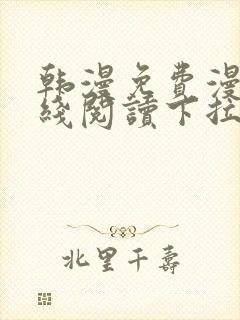 韩漫免费漫
线阅读下拉
北里千寿